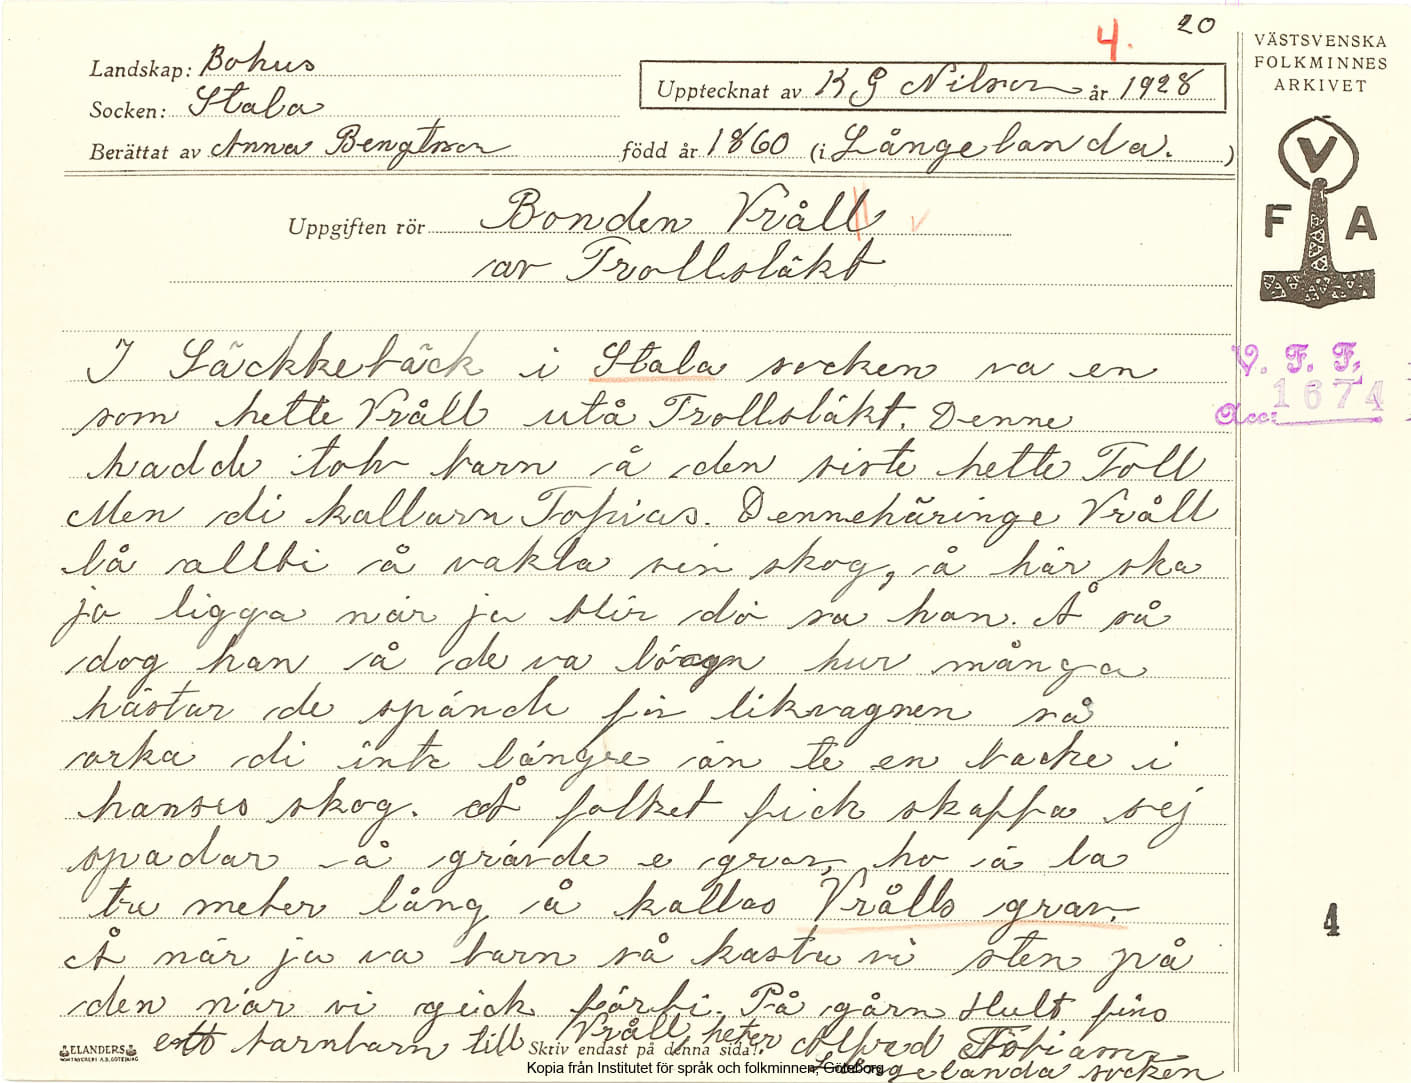 4.
20
VÄSTSVENSKA
FOLKMINNES
ARKIVET
Landskap: Bohus
Upptecknat av K G Nilson år 1928
Socken: Stala
Berättat av Anna Bengtsson född år 1860 (i Långelanda.)
Uppgiften rör Bonden Vråll
av Trollsläkt
V
F A
I Säckkebäck i Stala socken va en
som hette Vråll utå Trollsläkt. Denne
hadde tolv barn å den siste hette Toll
Men di kallarn Topias. Dennehäringe Vråll
lå allti å vakta sin skog, å här ska
ja ligga när ja blir dö sa han. Å så
dog han å de va hur många
hästar de spände för likvagnen så
orka di inte längre än te en backe i
hanses skog. Å folket fick skaffa sej
spadar å grävde e grav, ho ä ba
tre meter lång å kallas Vrålls grav.
Å när ja va barn så kasta vi sten på
den när vi gick förbi. På gårn Hult fins
ett barnbarn till Vråll, heter Alfred Tobiasson
Långelanda socken
V. F. F.
Acc: 1674
4
ELANDERS
BOKTRYCKERI A.B. GÖTEBORG
Skriv endast på denna sida!
Kopia från Institutet för språk och folkminnen, Göteborg